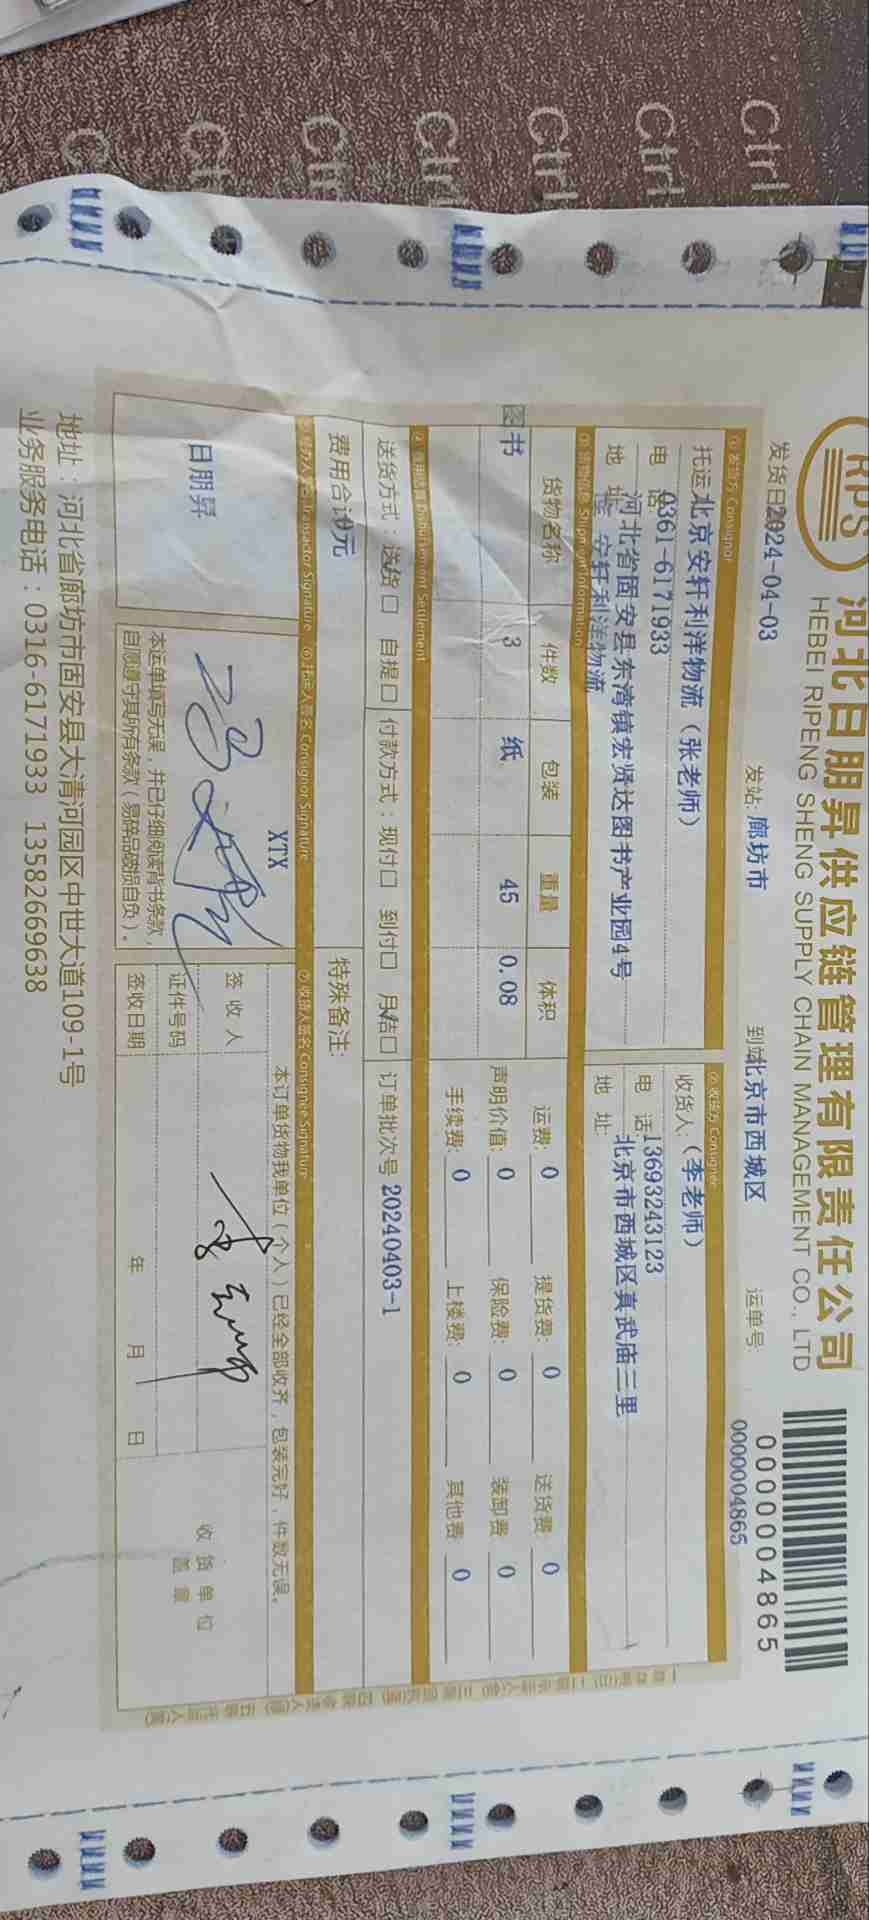 Ctrl Ctrl Ctrl Ctrl Ctrl Ctrl Ctrl
RPS 河北日朋昇供应链管理有限责任公司
HEBEI RIPENG SHENG SUPPLY CHAIN MANAGEMENT CO., LTD
0000004865
发货日2024-04-03 发站:廊坊市 到站北京市西城区 运单号: 0000004865
① 发货方 Consignor ② 收货方 Consignee
托运北京安轩利洋物流（张老师） 收货人:（李老师）
电 话0361-6171933 电 话13693243123
地 址 河北省固安县东湾镇宏贤达图书产业园4号 地 址: 北京市西城区真武庙三里
安轩利洋物流
③ 货物信息 Shipment Information
货物名称 件数 包装 重量 体积 运费: 0 提货费: 0 送货费 0
图书 3 纸 45 0.08 声明价值: 0 保险费: 0 装卸费 0
手续费: 0 上楼费: 0 其他费 0
④ 费用结算 Disbursement Settlement
送货方式:送货口 自提口 付款方式:现付口 到付口 月结口 订单批次号 20240403-1
费用合计0元 特殊备注:
⑤ 经办人签名 Transactor Signature ⑥ 托运人签名 Consignor Signature ⑦ 收货人签名 Consignee Signature
日朋昇
XTX
本订单货物我单位（个人）已经全部收齐，包装完好，件数无误。
签 收 人
收 货 单 位
盖 章
证件号码
本运单填写无误，并已仔细阅读背书条款，
自愿遵守其所有条款（易碎品破损自负）。
签收日期 年 月 日
地址：河北省廊坊市固安县大清河园区中世大道109-1号
业务服务电话：0316-6171933 13582669638